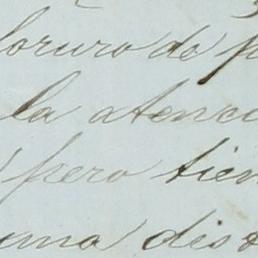 loruro de p
la atenci
pero tien
una dist